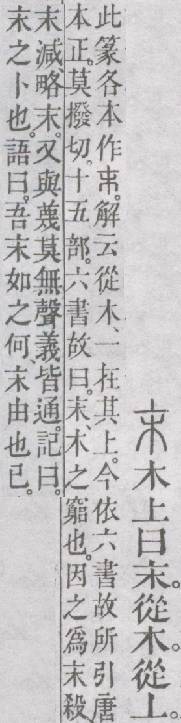 末木上曰末。從木。從上。
此篆各本作末。解云從木、一在其上。今依六書故所引唐
本正。莫撥切。十五部。六書故曰。末、木之窮也。因之爲末殺
末減、略末。又與蔑莫無聲義皆通。記曰。
末之卜也。語曰。吾末如之何、末由也已。